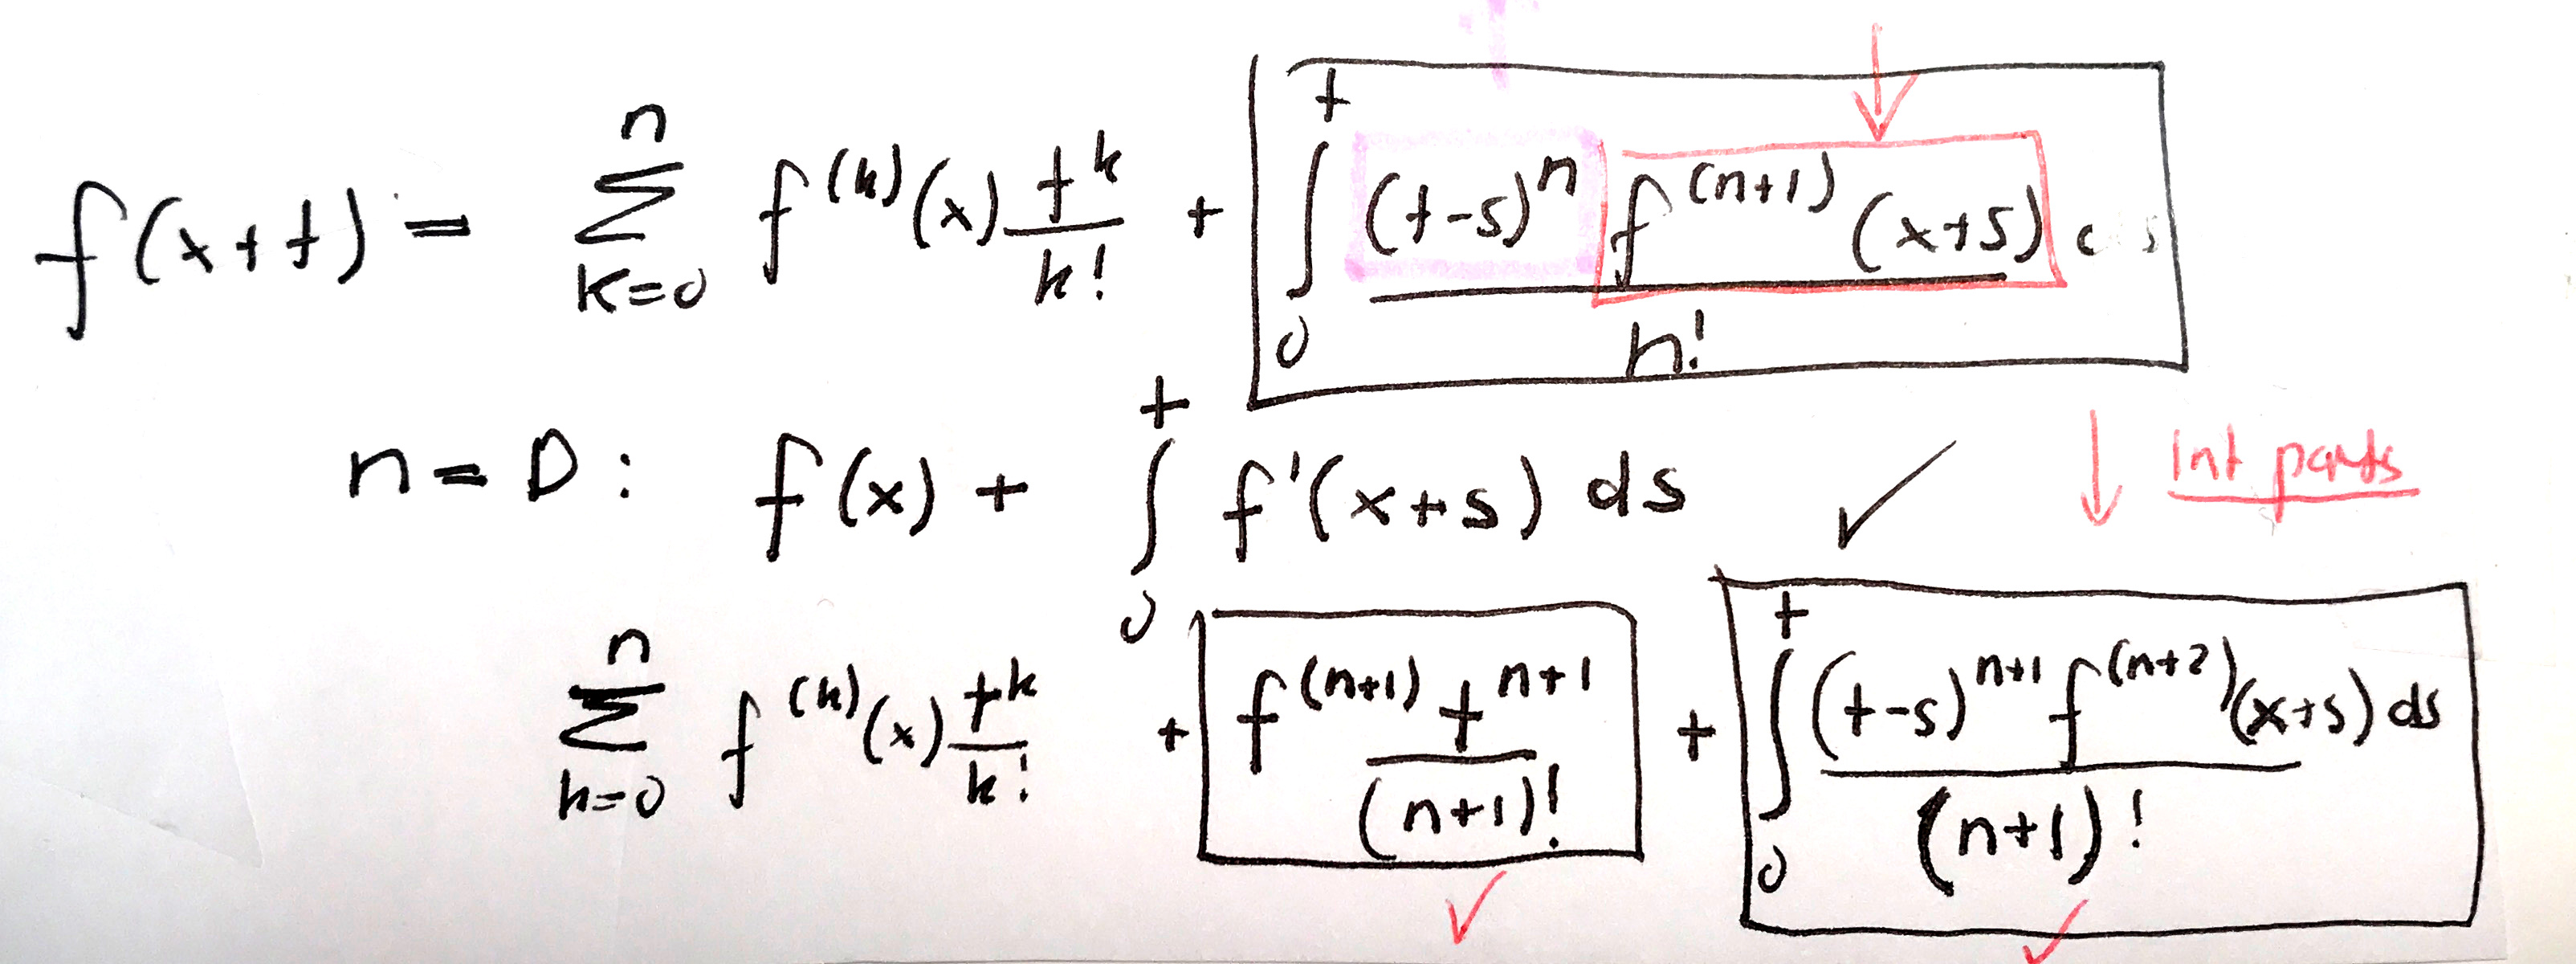 f(x+t) = \sum_{k=0}^{n} f^{(k)}(x) \frac{t^k}{k!} + \int_0^t \frac{(t-s)^n f^{(n+1)}(x+s)}{n!} ds
n=0: f(x) + \int_0^t f'(x+s) ds ✓ ↓ Int parts
\sum_{k=0}^{n} f^{(k)}(x) \frac{t^k}{k!} + f^{(n+1)} \frac{t^{n+1}}{(n+1)!} + \int_0^t \frac{(t-s)^{n+1} f^{(n+2)}(x+s) ds}{(n+1)!}
✓ ✓